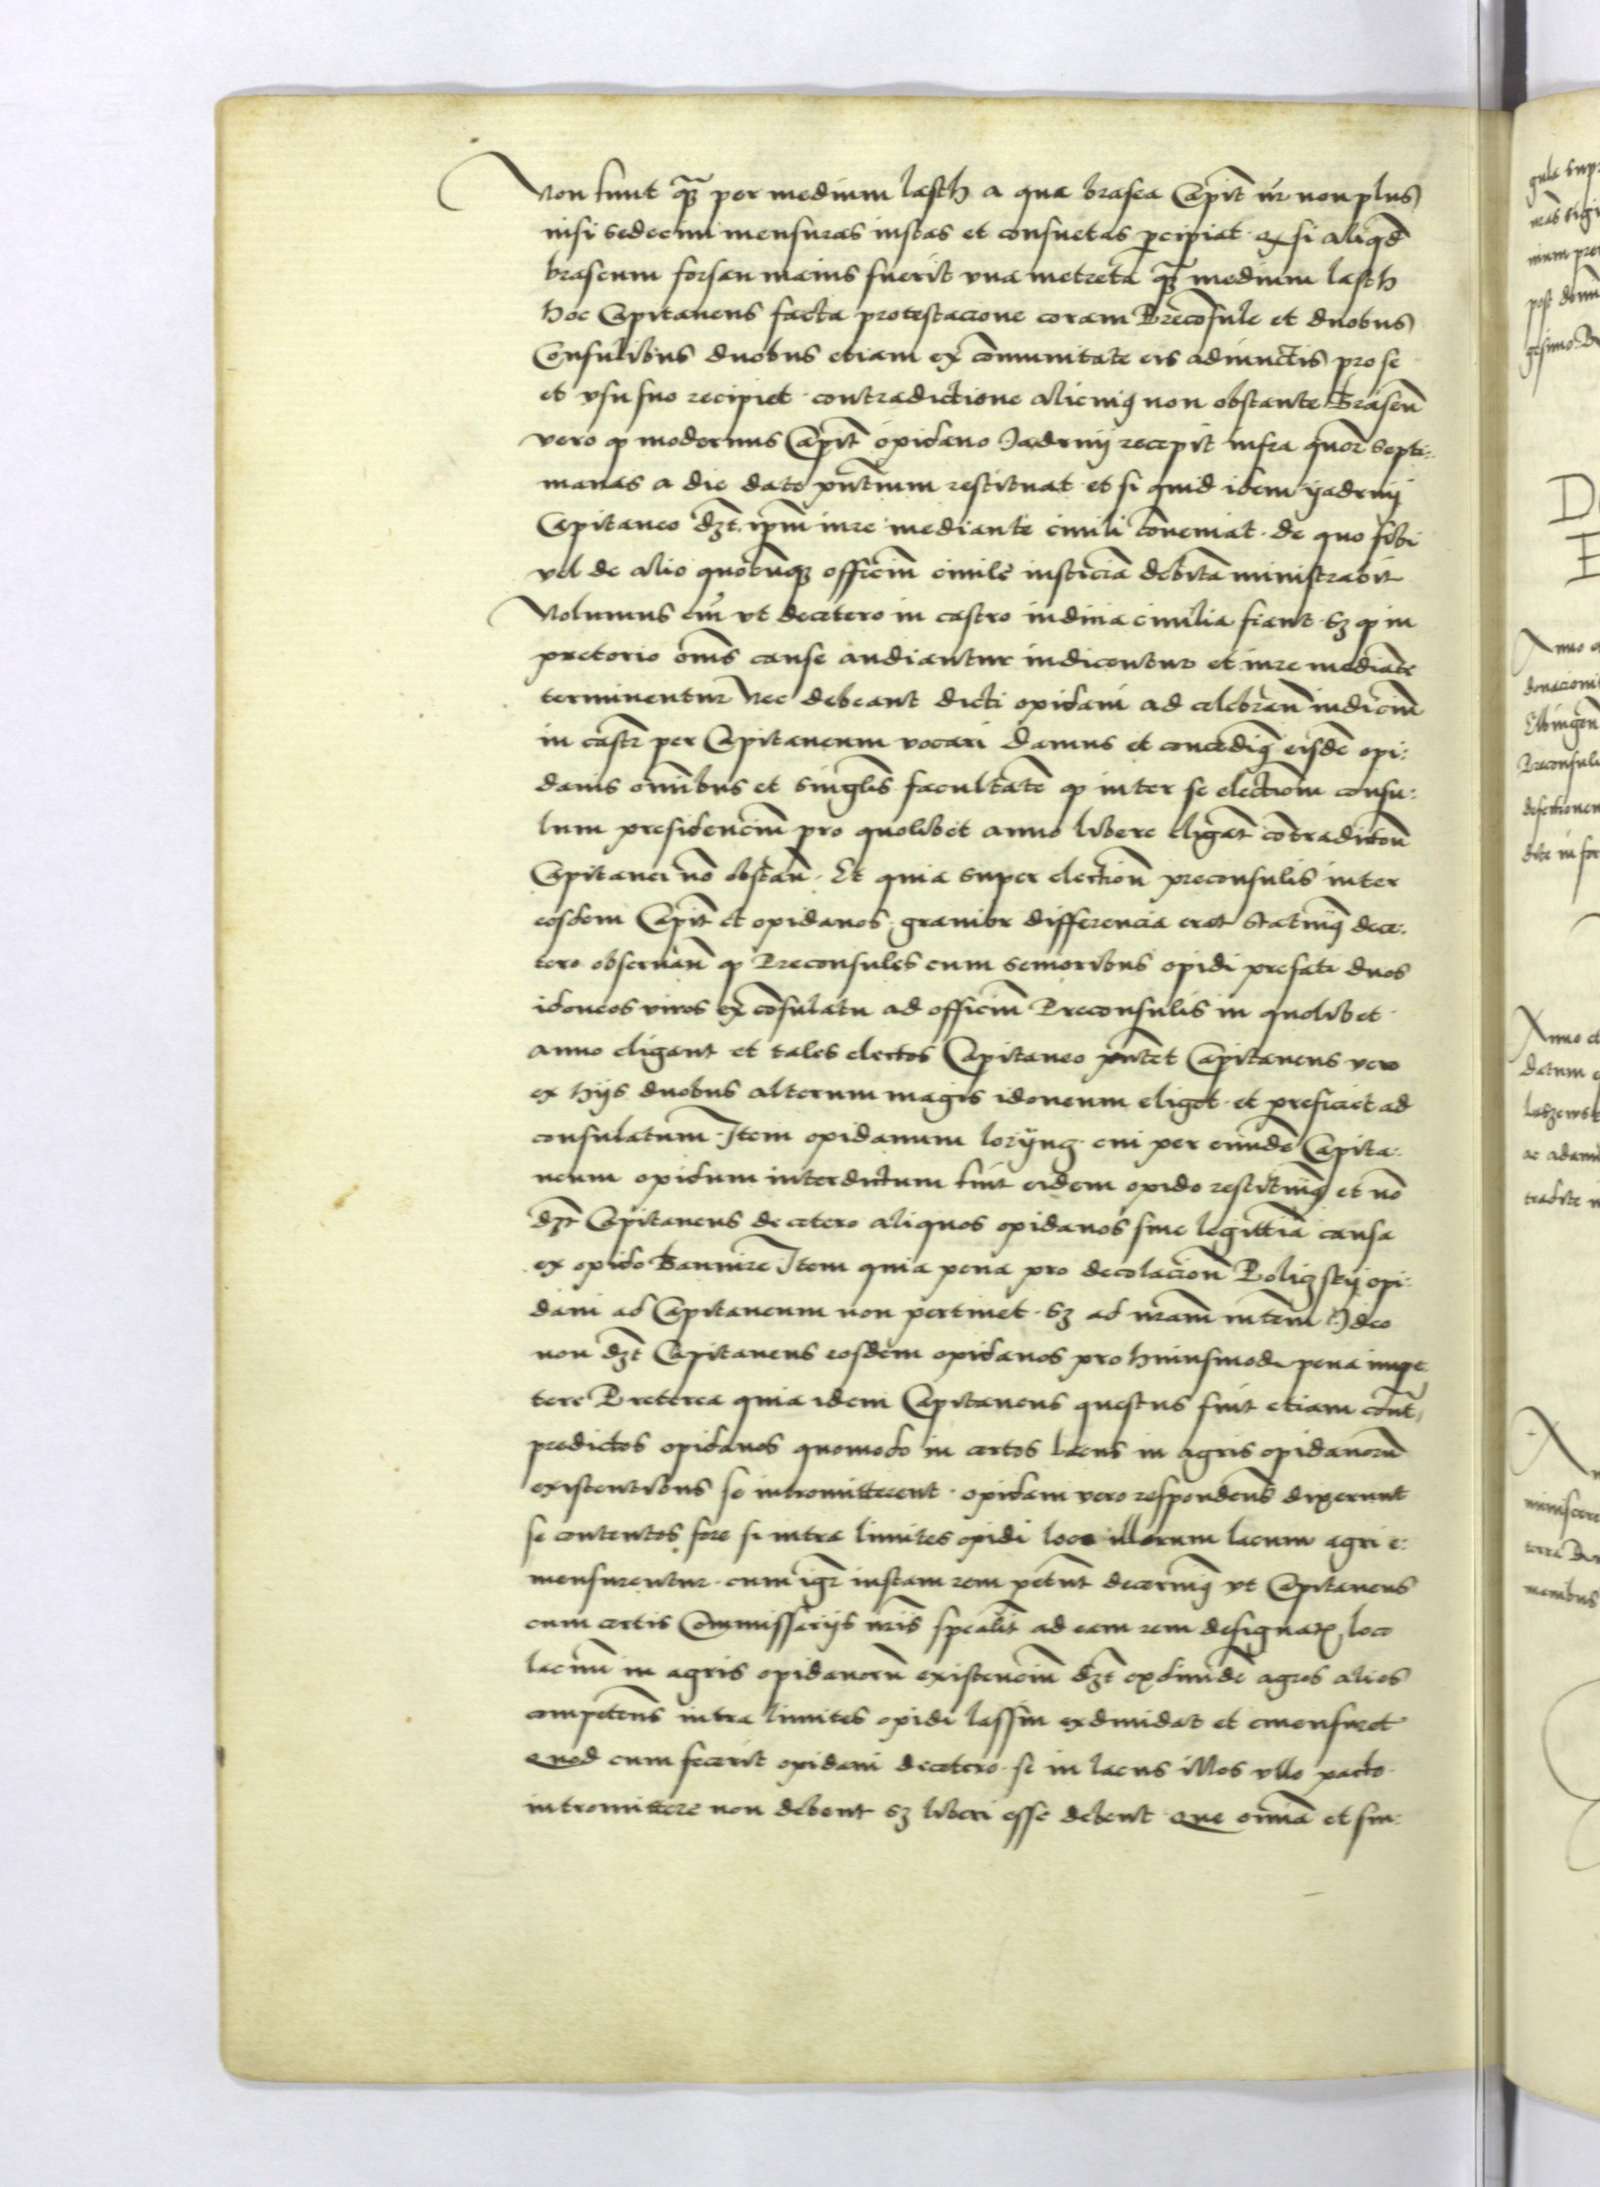 Non sunt q̃ per medium lasth a qua brasea Capit̃ nr̃ non plus
nisi sedecim mensuras iustas et consuetas p̱cipiat · Q si aliq̃d
braseum forsan maius fuerit vna metreta q̃ medium lasth
hoc Capitaneus facta protestacione coram Precõsule et duobus
Consulibus duobus etiam ex comunitate eis adiunctis pro se
et vsu suo recipiet · contradictione alicuiꝗ non obstante Braseũ
vero ꝙ modernus Capit̃ opidano Jadrnij recepit infra quor̃ septi:
manas a die dato pñtium restituat · et si quid idem yadrnij
Capitaneo dʒt ip̃m iure mediante ciuili cõueniat · de quo sibi
vel de alio quocũqʒ officiũ ciuile iusticiã debitã ministrabit
Volumus eñ vt decetero in castro iudicia ciuilia fiant sʒ ꝙ in
pretorio oms̃ cause audiantur iudicentur et iure mediãte
terminentur Nec debeant dicti opidani ad celebrañ iudiciũ
in castr̃ per Capitaneum vocari Damus et concediꝗ eisdẽ opi:
danis omibus et singl̃is facultatẽ ꝙ inter se electiom̃ consu:
lum presidenciũ pro quolibet anno libere eligãt cõtradictoñ
Capitanei nõ obstañ · Et quia super electioñ preconsulis inter
eosdem Capit̃ et opidanos grauior differencia erat Statuiꝗ dece:
tero obseruañ ꝙ Preconsules cum senioribus opidi prefati duos
idoneos viros ex cõsulatu ad officiũ Preconsulis in quolibet
anno eligant et tales electos Capitaneo pñtet Capitaneus vero
ex hijs duobus alterum magis idoneum eliget · et preficiet ad
consulatum · Item opidanum loryng cui per eũdẽ Capita:
neum opidum interdictum fuit eidem opido restituiꝗ et nõ
dʒt Capitaneus decetero aliquos opidanos sine legittiã causa
ex opido bannire Item quia pena pro decolacioñ Poligstij opi:
dani ad Capitaneum non pertinet · sʒ ad nr̃am mtem̃ Ideo
non dʒt Capitaneus eosdem opidanos pro huiusmodi pena impe
tere Preterea quia idem Capitaneus questus fuit etiam cont̃
predictos opidanos quomodo in certos lacus in agris opidanorũ
existentibus se intromitterent · opidani vero respondeñs dixerunt
se contentos fore si intra limites opidi loco illorum lacuum agri e:
mensurentur · cum igr̃ iustam rem petunt decerniꝗ vt Capitaneus
cum certis Commissarijs nr̃is speal̃it ad eam rem designatꝭ loco
lacuũ in agris opidanorũ existenciũ dʒt exdiuidẽ agros alios
competeñs intra limites opidi lassin exdiuidat et emensuret
Quod cum fecerit opidani decetero se in lacus illos vllo pacto
intromittere non debent sʒ liberi esse debent Que omia et sin: